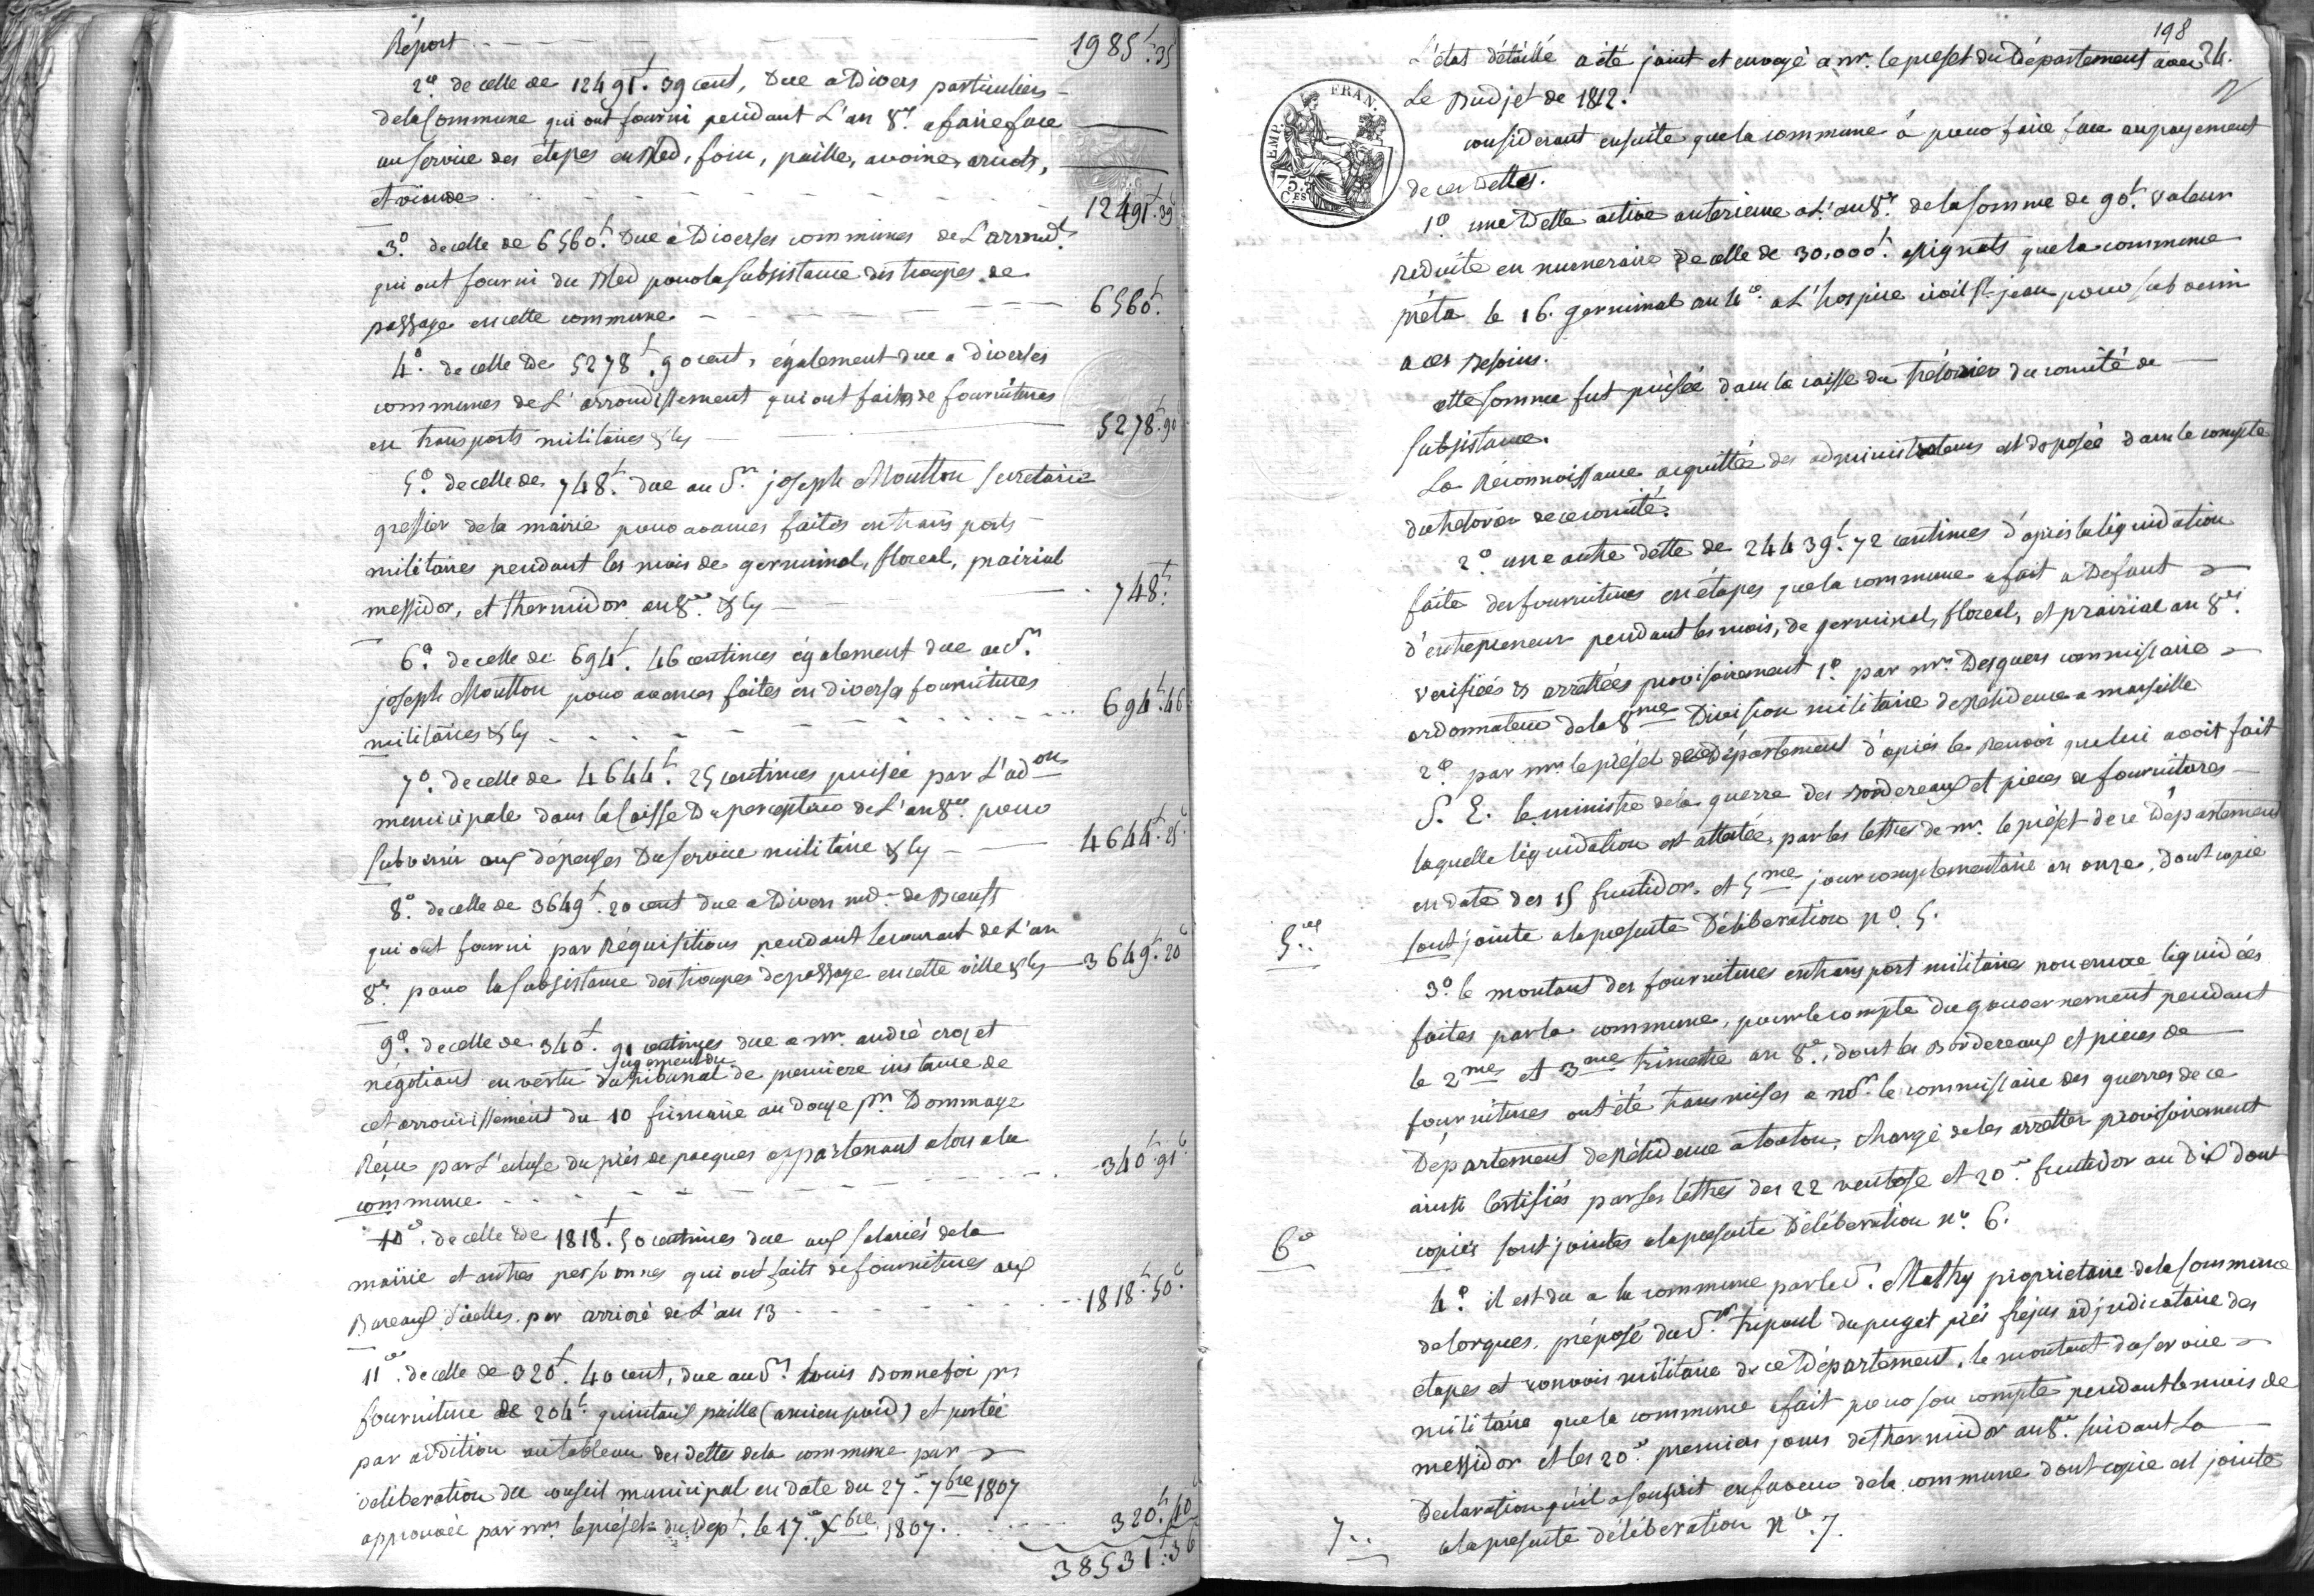 Réport 1985ᵗ.35
2° de celle de 12491ᵗ. 39 cent, due a Divers particuliers
dela Commune qui ont fourni pendant L'an 8ᵉ. a faire face
au service des étapes en Bled, foin, paille, avoine,
et viande 12491ᵗ.39
3° de celle de 6560ᵗ. Due à Diverses communes de L'arrondᵗ.
qui ont fourni du Bled pour la Subsistance des troupes de
passage en cette commune 6560ᵗ.
4° de celle de 5278ᵗ. 90 cent, également due a diverses
communes de L'arrondissement qui ont faites de fournitures
en transports militaires & Cy 5278ᵗ.90
5° de celle de 748ᵗ. due au Sʳ. joseph Moutton Secretaire
greffier dela mairie pour avances faites en transports
militaires pendant les mois de germinal, floreal, prairial
messidor, et thermidor an 8ᵉ. & Cy 748ᵗ.
6° de celle de 694ᵗ. 46 centimes également due au Sʳ.
joseph Moutton pour avances faites en diverses fournitures
militaires & Cy 694ᵗ.46
7° de celle de 4644ᵗ. 25 centimes puisée par L'adᵒⁿ
municipale dans la Caisse Du percepteur de L'an 8ᵉ. pour
Subvenir aux dépenses Du service militaire & Cy 4644ᵗ.25ᶜ
8° de celle de 3649ᵗ. 20 cent due a Divers md. de Bœufs
qui ont fourni par Réquisitions pendant le courant de L'an
8ᵉ. pour la Subsistance des troupes de passage en cette ville & Cy 3649ᵗ.20ᶜ
9° de celle de 340ᵗ. 91 centimes due a mʳ. andré crozet
jugement du
négotiant en vertu du tribunal de premiere instance de
cet arrondissement du 10 frimaire an douze pʳ. Dommage
Réçu par L'ecluse du près de pacques appartenant alors a la
commune 340ᵗ.91ᶜ
10° de celle de 1818ᵗ. 50 centimes due aux Salariés dela
mairie et autres personnes qui ont faits de fournitures aux
Bureaux d'icelles par arrieré de L'an 13 1818ᵗ.50ᶜ
11° de celle de 320ᵗ. 40 cent, due au Sʳ. Louis Bonnefoi pʳ
fourniture de 204ᵗ. quintaux paille (ancien poid) et portée
par addition au tableau des dettes dela commune par
deliberation du conseil municipal en date du 27 7bre 1807
approuvée par mʳ. le prefet du Depᵗ. le 17 Xbre 1807. 320ᵗ.40ᶜ
38531ᵗ.36
198
L'état détaillé a été joint et envoyé a mʳ. le prefet du Département avec 24.
Le Budjet de 1812.
EMP. FRAN.
75.
CES
considerant ensuite que la commune à pour faire face au payement
de ces dettes.
1° une Dette active anterieure a L'an 8ᵉ. dela Somme de 90ᵗ. valeur
reduite en numeraire de celle de 30.000ᵗ. assignats que la commune
prêta le 16. germinal an 4ᵉ. a L'hospice civil Sᵗ. jean pour subvenir
a ces Besoins.
cette Somme fut puisée dans la caisse du trésorier du comité de
Subsistance.
La Réconnoissance acquittée des administrateurs est déposée dans le compte
du trésorier de ce comité.
2° une autre dette de 24439ᵗ. 72 centimes d'apres la liquidation
faite des fournitures en étapes que la commune a fait a Defaut
d'entrepreneur pendant les mois, de germinal, floreal, et prairial an 8ᵉ.
verifiées & arrettées provisoirement 1° par mʳ. Desquers commissaire
ordonnateur dela 8me Division militaire de résidence a marseille
2° par mʳ. le prefet de ce département d'apres le renvoi que lui avoit fait
S. E. le ministre dela guerre des Bordereaux et pieces de fournitures
laquelle liquidation est attestée, par les lettres de mʳ. le préfet de ce Département
en date des 15 fructidor, et 5me jour complementaire an onze, dont copie
5ᵉ. sont jointe a la presente Déliberation n° 5.
3° le montant des fournitures en transport militaires non encore liquidées
faites par la commune, pour le compte du gouvernement pendant
le 2me et 3me trimestre an 8ᵉ, dont les Bordereaux et pieces de
fournitures ont été transmises a mʳ. le commissaire des guerres de ce
Département de résidence a toulon, chargé de les arretter provisoirement
ainsi certifiés par ses lettres des 22 ventose et 20 fructidor an dix dont
6ᵉ copies sont jointes a la presente Déliberation n°. 6.
4° il est du a la commune par le Sʳ. Mathy proprietaire dela Commune
de lorgues, préposé du Sʳ. tripoul du puget près frejus adjudicataire des
etapes et convois militaire de ce Département, le montant du service
militaire que la commune a fait pour son compte pendant le mois de
messidor et les 20 premiers jours de thermidor an 8ᵉ. suivant La
Declaration qu'il a souscrit en faveur dela commune dont copie est jointe
7.. a la presente déliberation n° 7.